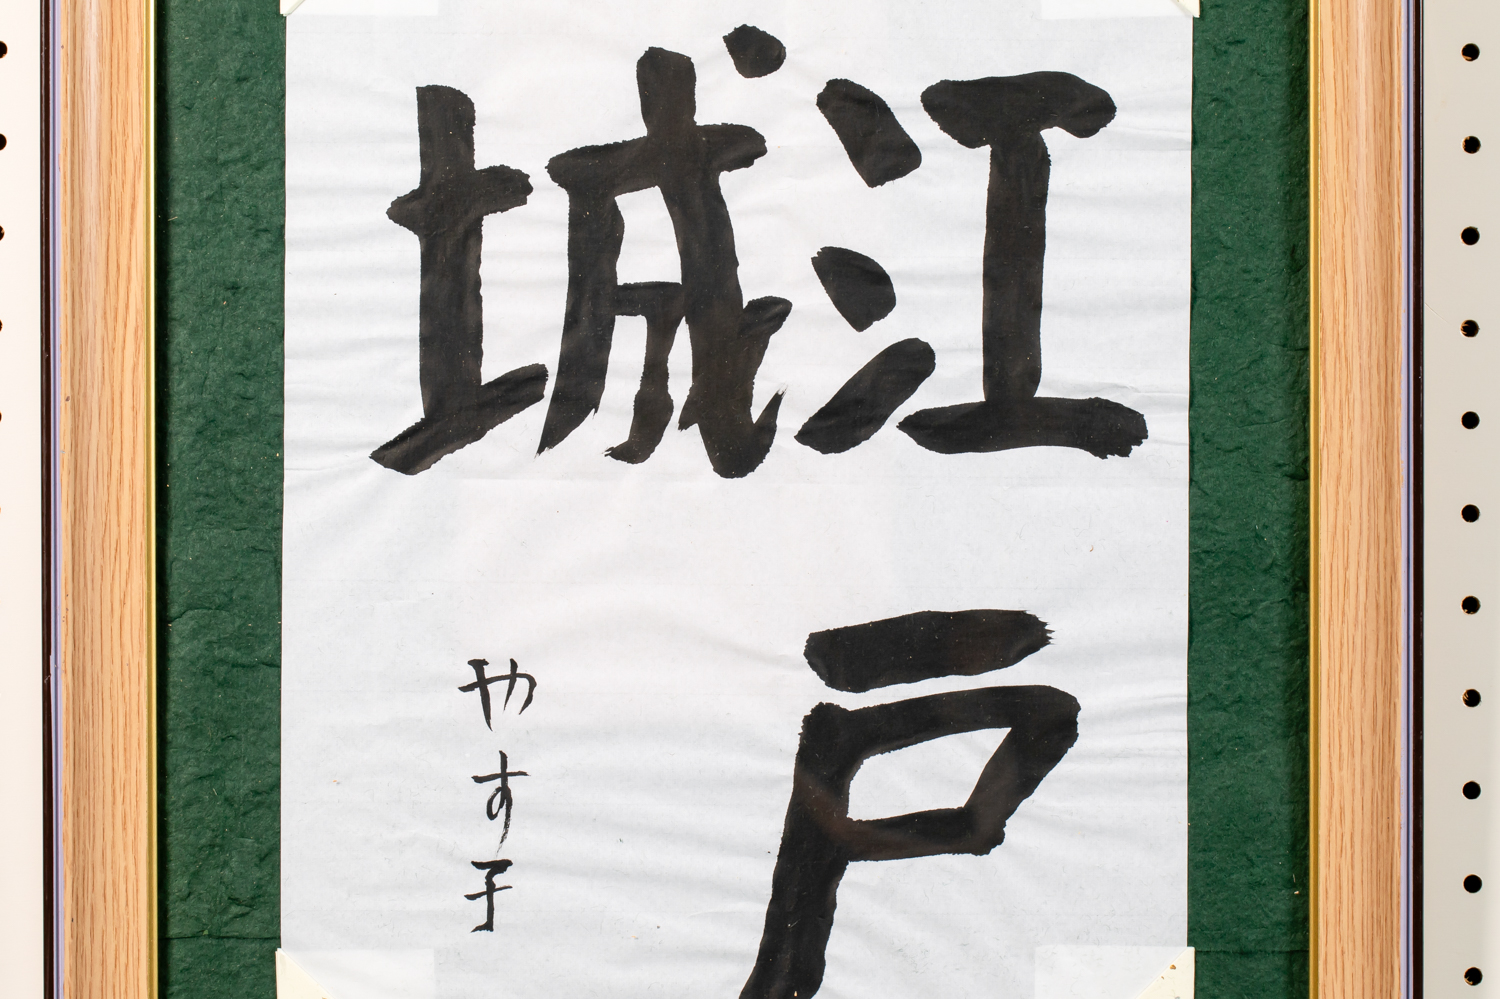 江戸
城
やす子